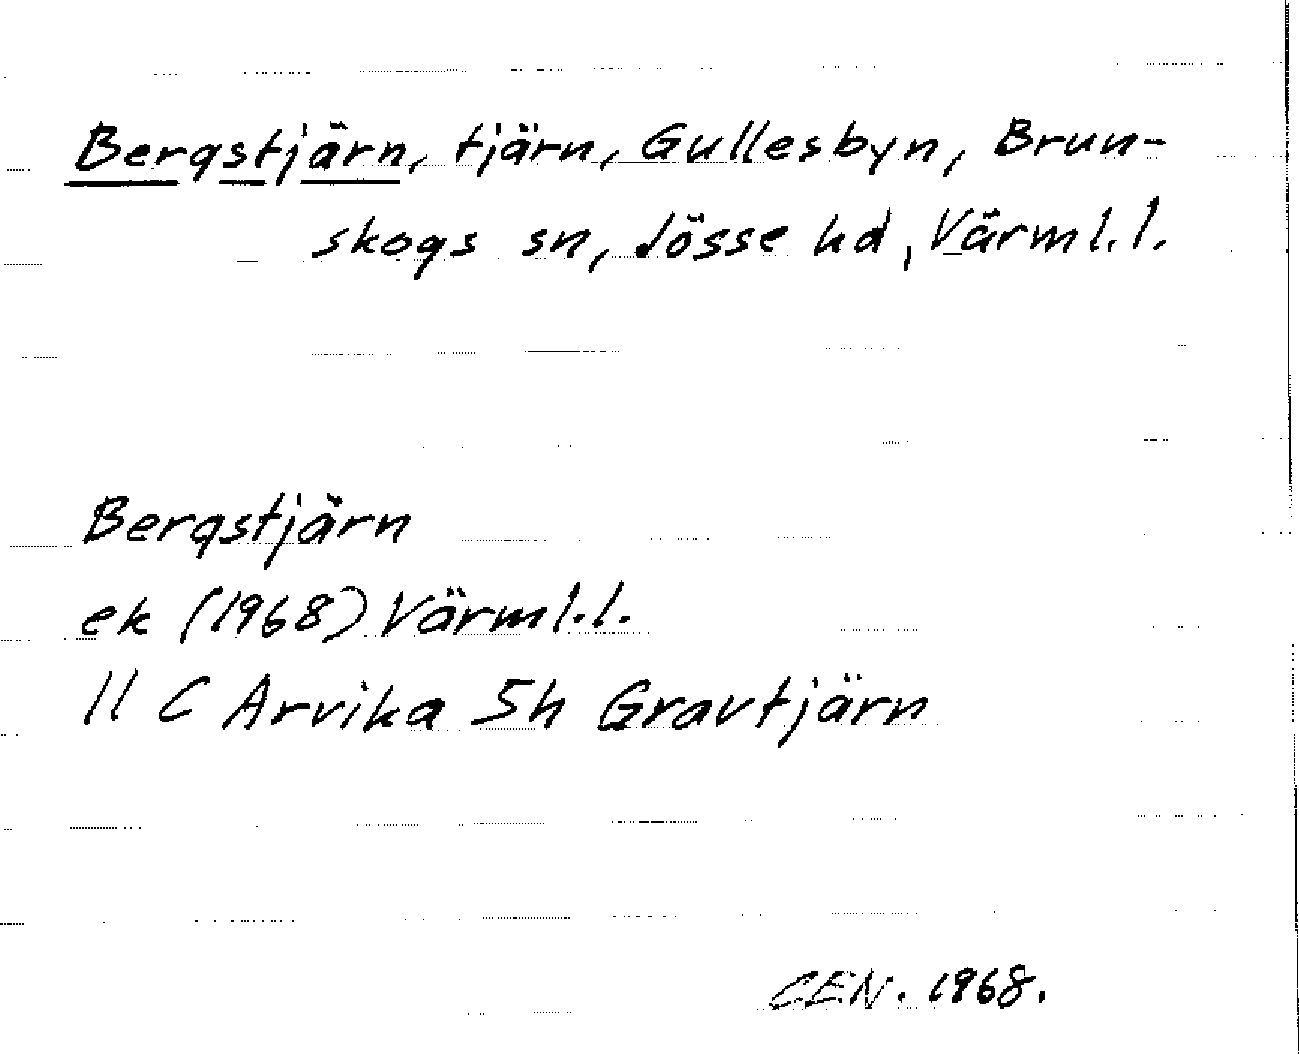 Bergstjärn, tjärn, Gullesbyn, Brun-
skogs sn, Jösse hd, Värml.l.
Bergstjärn
ek (1968) Värml.l.
11 C Arvika 5h Gravtjärn
CEN. 1968.